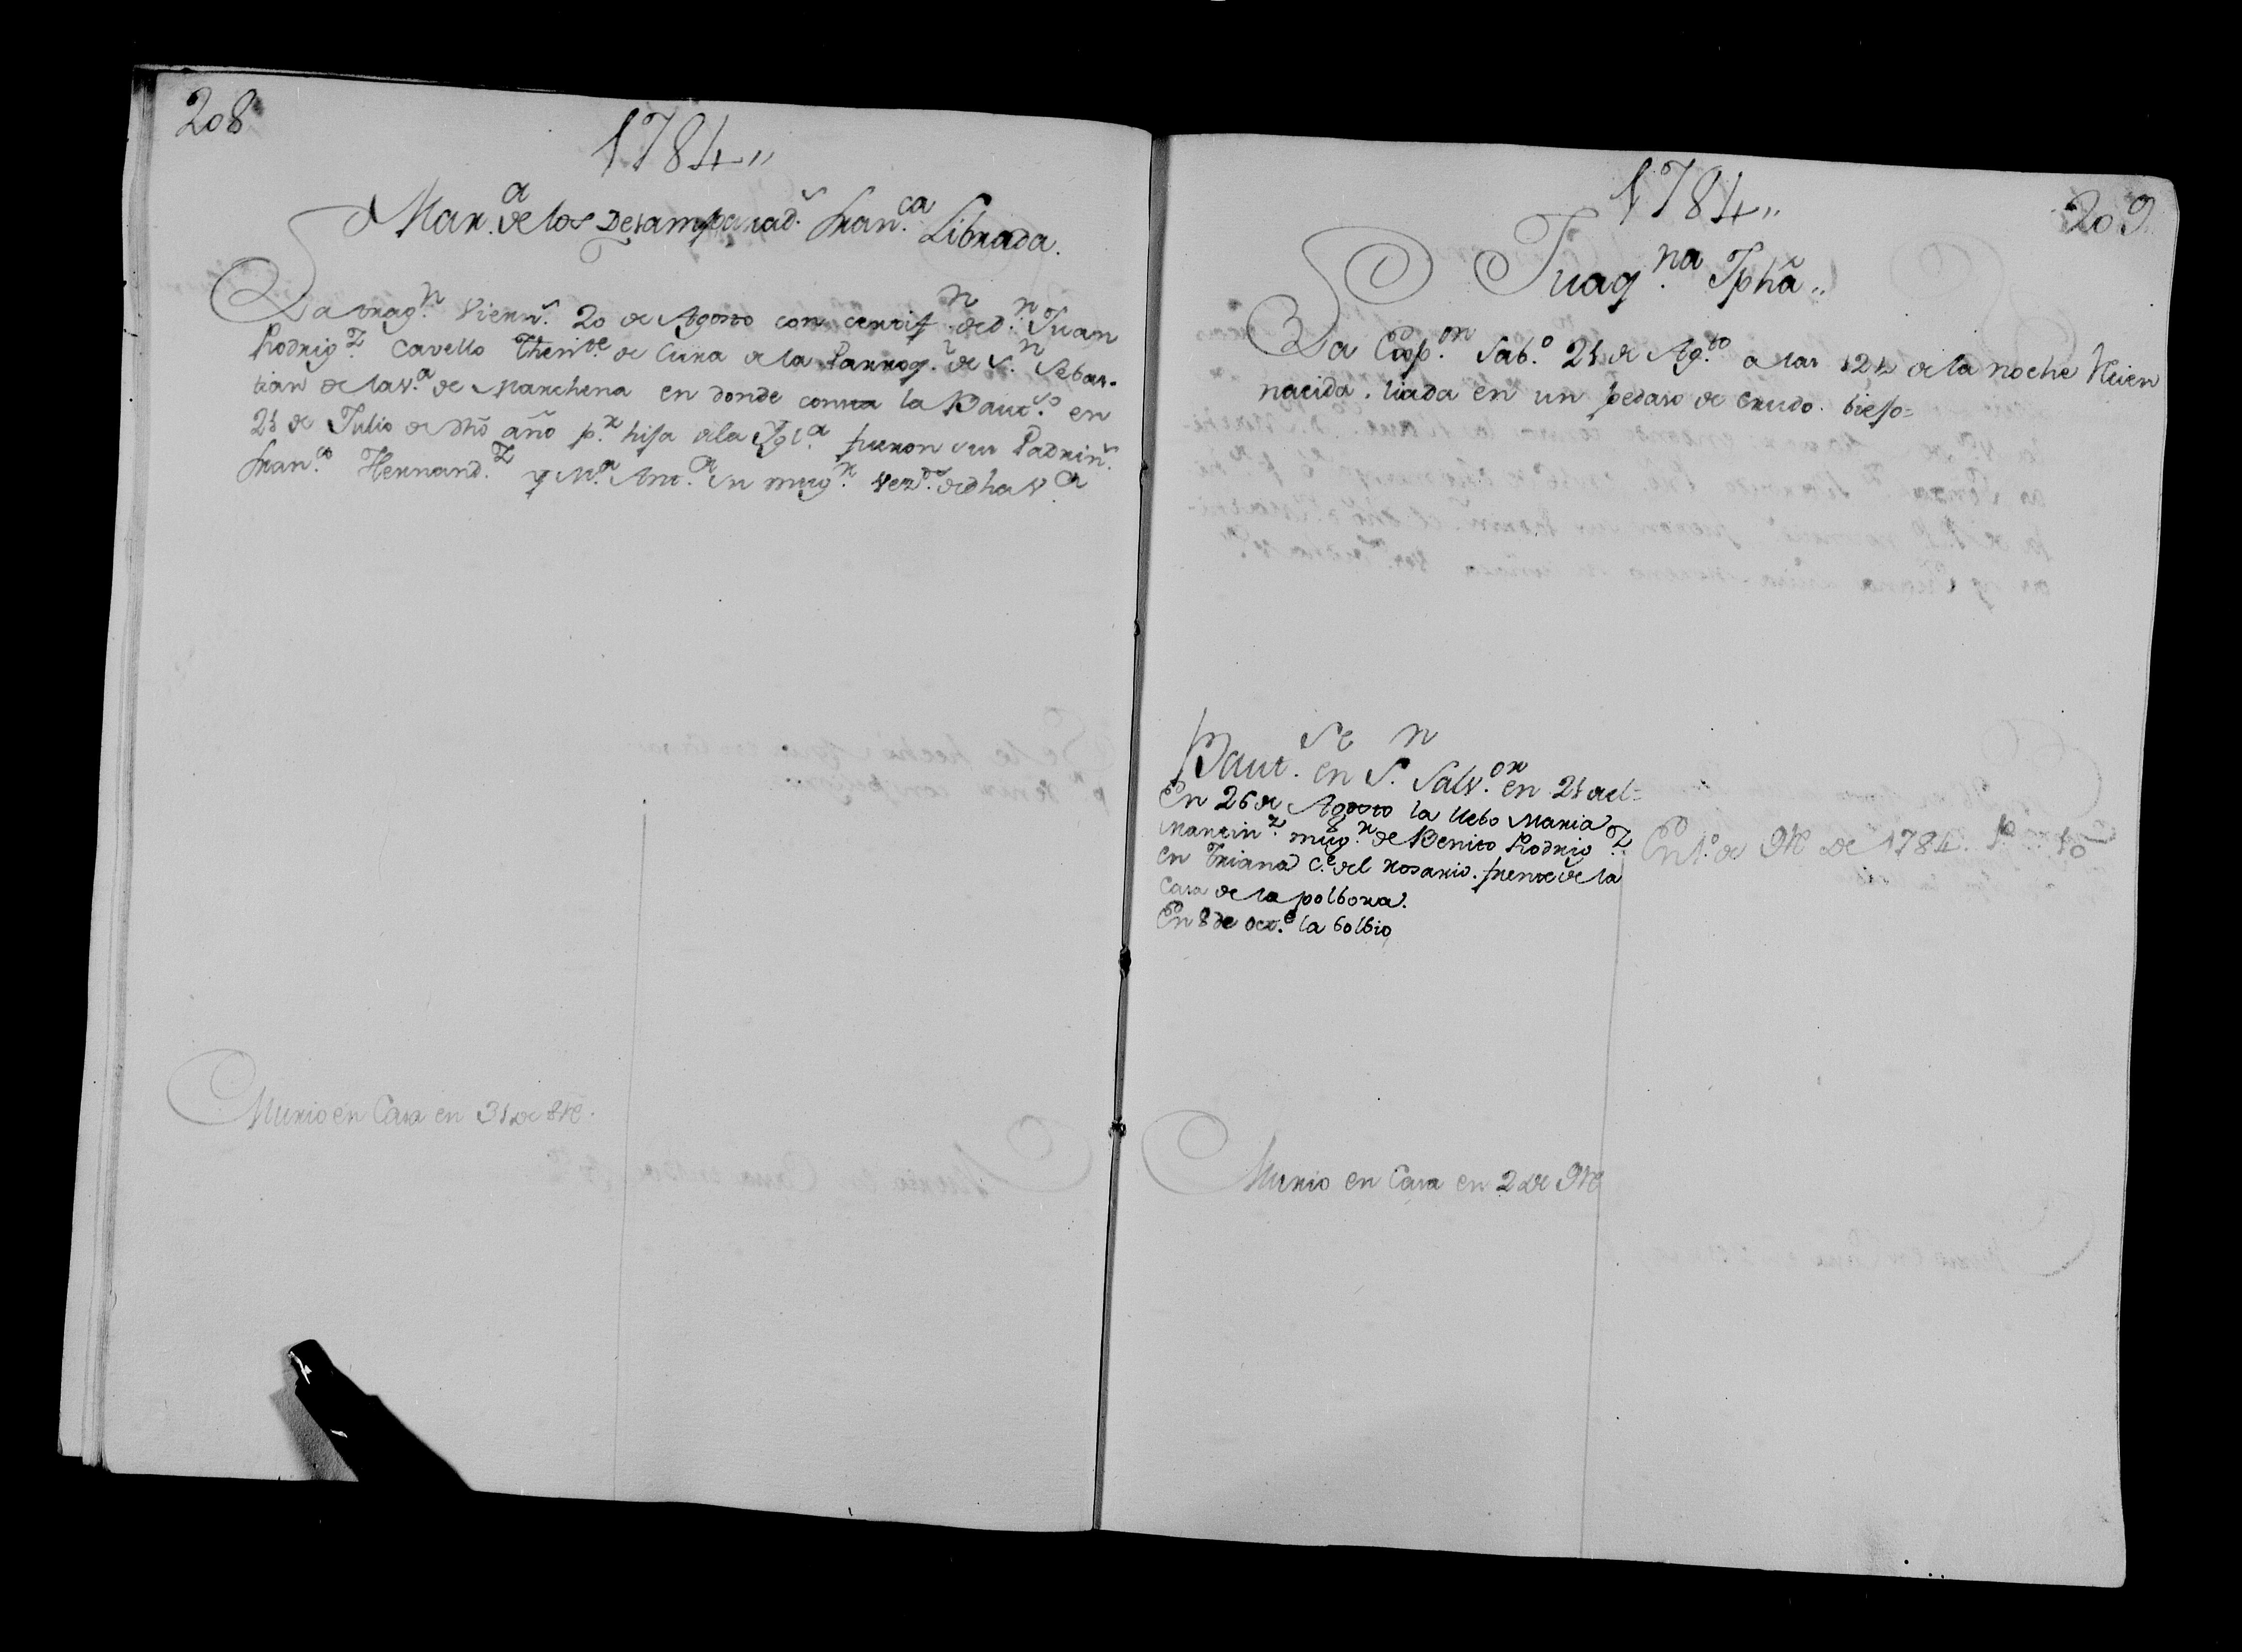 208
1784"
Mar.ª de los Desamparad.ˢ Fran.ᶜᵃ Librada.
La trag.ⁿ Viern.ˢ 20 de Agosto con certif.ⁿ de D.ⁿ Juan
Rodrig.ᶻ Cavello Theni.ᵗᵉ de Cura de la Parroq.ˡ de S.ⁿ Sebas-
tian de la V.ª de Marchena en donde consta la Baut.º en
21 de Julio de dho año p.ʳ hija de la Ygl.ª fueron sus Padrin.ˢ
Fran.ᶜᵒ Hernand.ᶻ y M.ª Ant.ª su mug.ʳ vez.ˢ de dha V.ª
Murio en Casa en 31 de 8re.
1784"
209
Juaq.ⁿᵃ Jpha"
La Esp.ᵒⁿ Sab.º 21 de Ag.ᵗᵒ a las 12½ de la noche Recien
nacida. liada en un pedaso de crudo. biejo=
Baut.ˢᵉ en S.ⁿ Salv.ᵒʳ en 21 del=
En 26 de Agosto la llebo Maria
Martin.ᶻ mug.ʳ de Benito Rodrig.ᶻ
en Triana C.ᵉ del Rosario. frente de la
Casa de la polbora.
En 8 de Oct.ᵉ la bolbio
En 1.º de 9re de 1784.
Murio en Casa en 2 de 9re